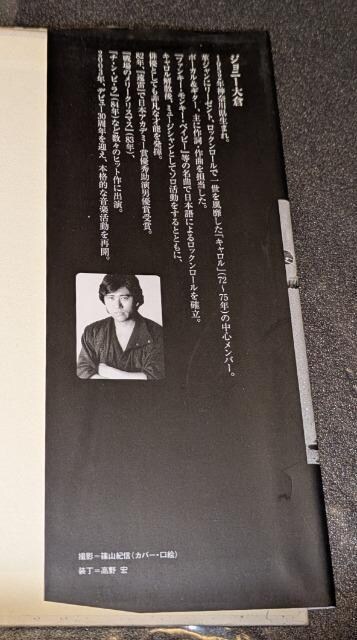 ジョニー大倉
1952年神奈川県生まれ。
革ジャンにリーゼント、ロックンロールで一世を風靡した「キャロル」(72〜75年)の中心メンバー。
ボーカル&ギター、主に作詞・作曲を担当した。
「ファンキー・モンキー・ベイビー」等の名曲で日本語によるロックンロールを確立。
キャロル解散後、ミュージシャンとしてソロ活動をするとともに、
俳優としても非凡な才能を発揮。
82年、「遠雷」で日本アカデミー賞優秀助演男優賞受賞。
「戦場のメリークリスマス」(83年)、
「チ・ン・ピ・ラ」(84年)など数々のヒット作に出演。
2003年、デビュー30周年を迎え、本格的な音楽活動を再開。
撮影=篠山紀信(カバー・口絵)
装丁=高野 宏